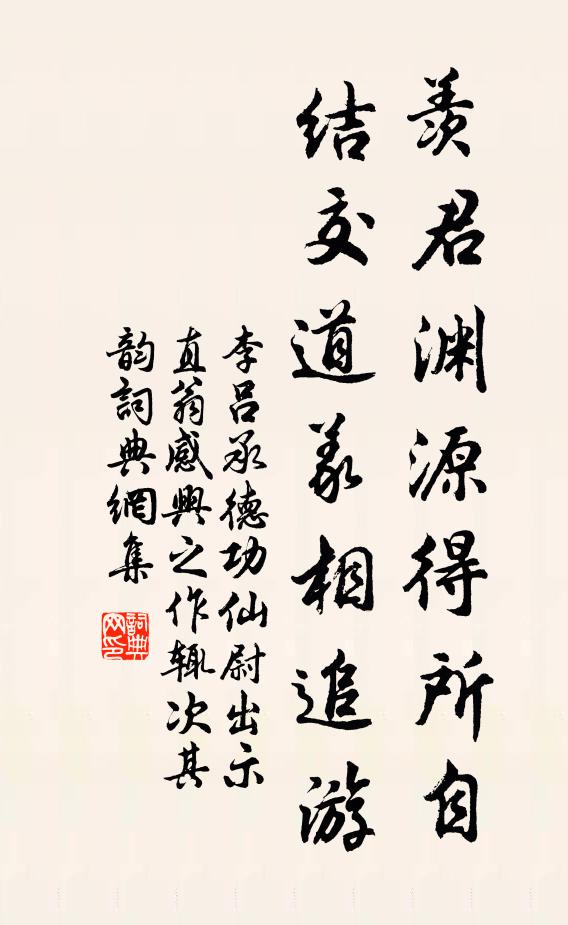 羨君渊源得所自
结交道義相追游
李吕承德功仙尉出示
直翁感興之作辄次其
韵詞典網集
詞典网印